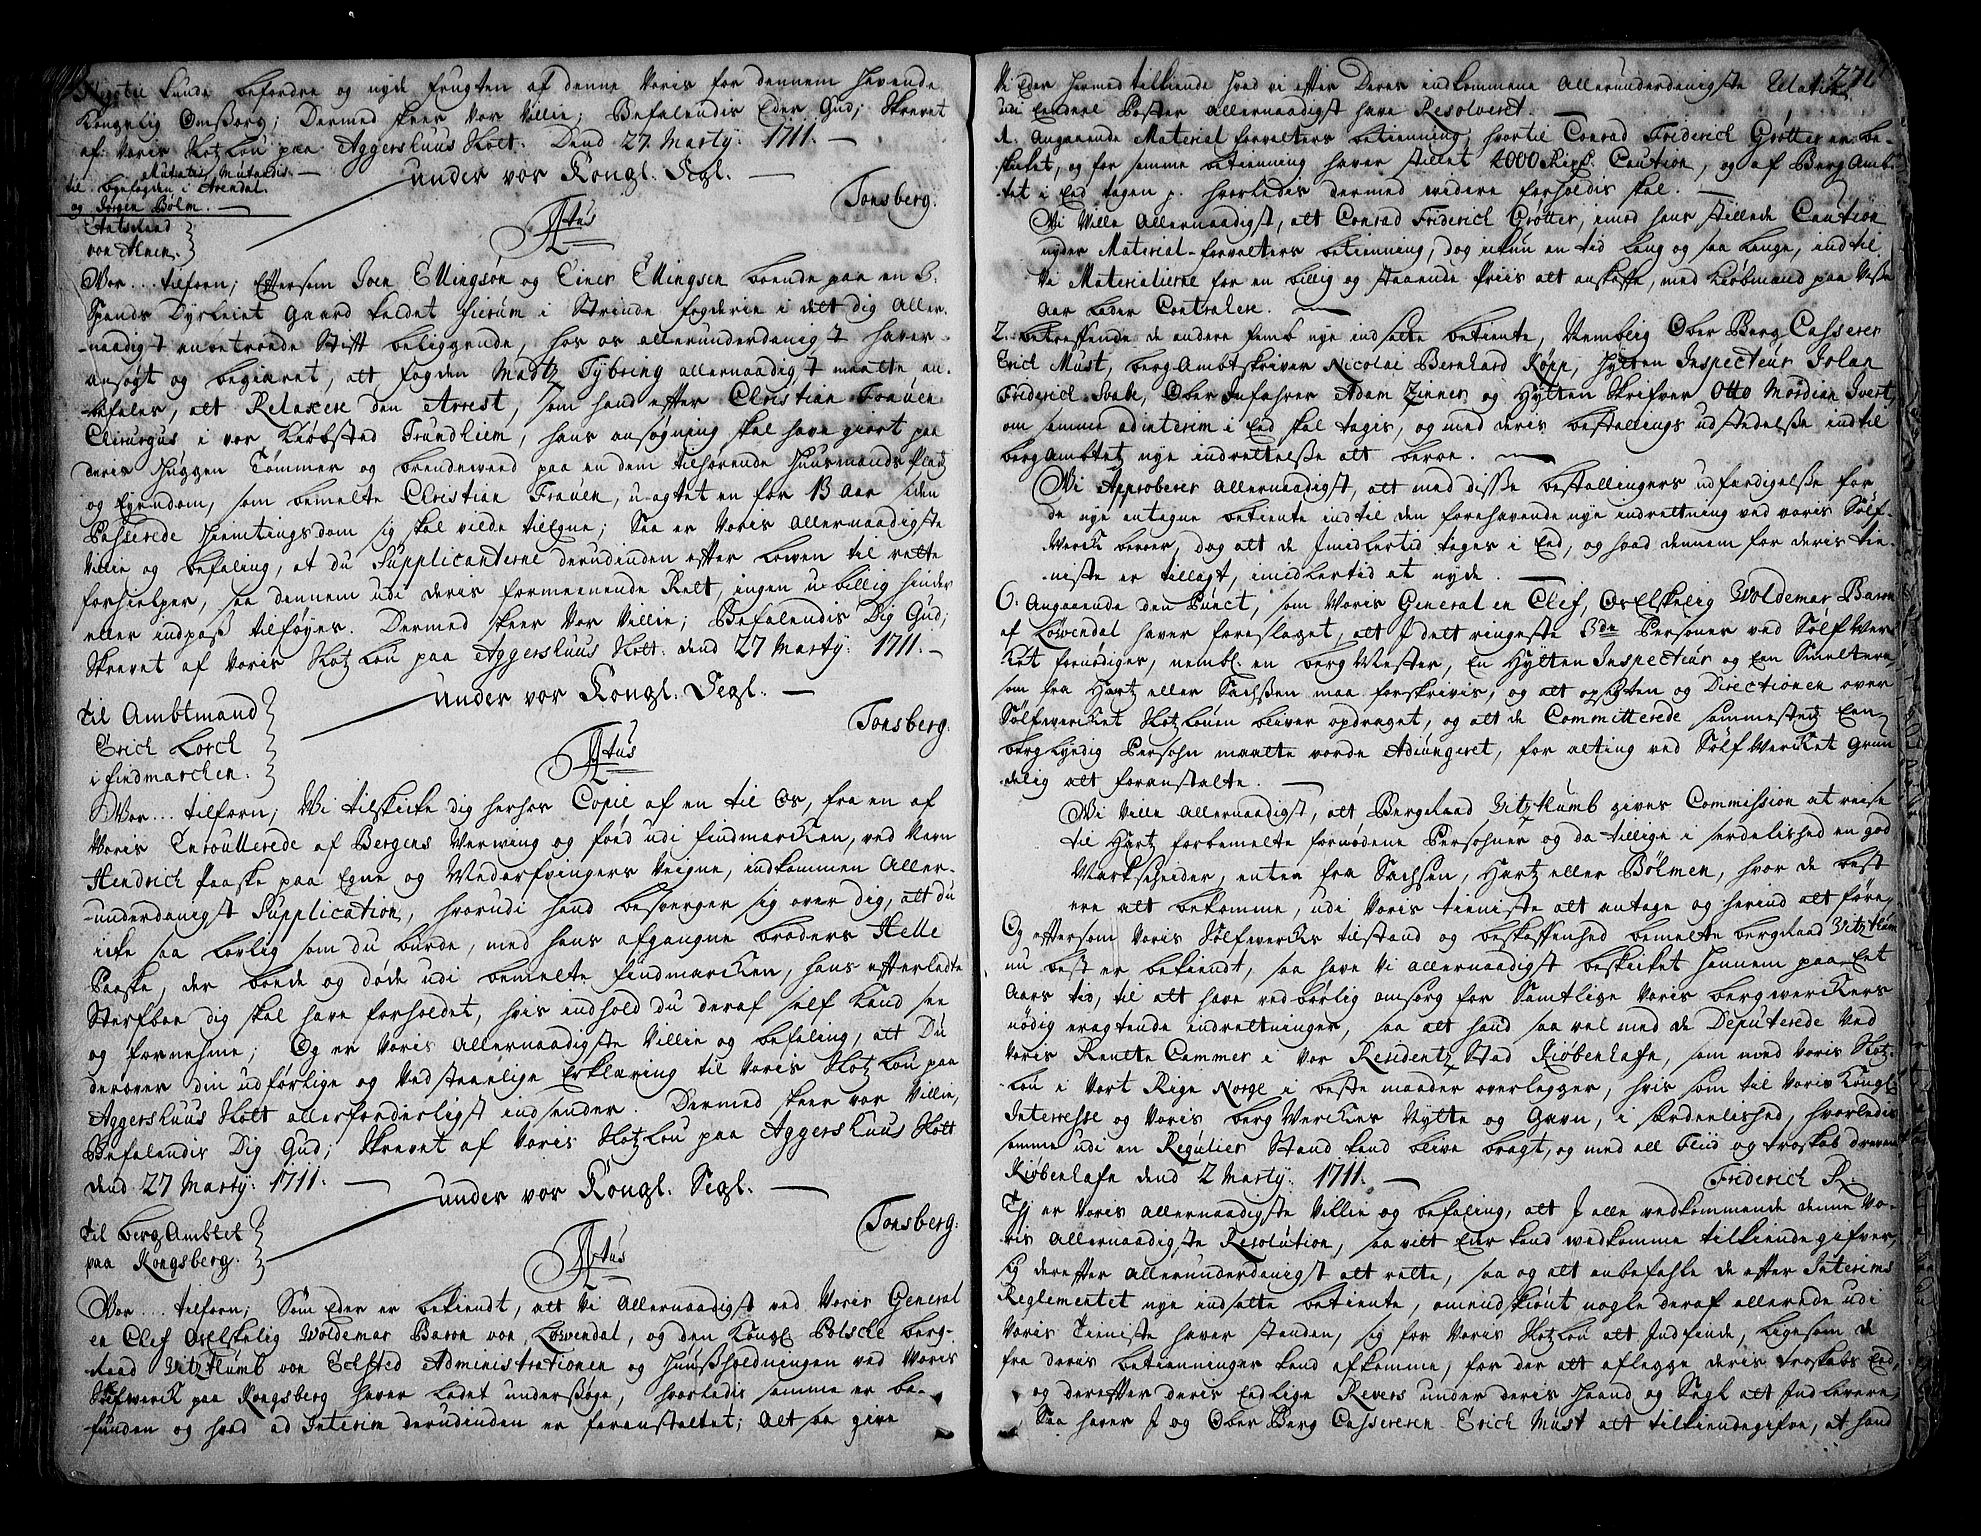 kunde befordre og nyde frugten af denne Voris for dennem havende
Kongelig Omsorg; Dermed skeer Vor Villie; Befalendis Eder Gud; Skrevet
af Voris Slotz Lou paa Aggershuus Slott. Dend 27 Martÿ: 1711.
Mutatis Mutandis.
til Byefogden i Arendal
og Jørgen Bølm.
under vor Kongl. Segl.
Tonsberg.
von Ahnen.
Vor... tilforn; Effter som Joen Ellingsøn og Einer Ellingsen boende paa en 3.
Spands Dyrleiet Gaard kaldet in Strinde fogderie i det dig Aller-
naadigst anbetroede Stift beliggende, hos os allerunderdanigst haver
ansøgt og begiæret, at fogden Madtz Tybring allernaadigst maatte an-
befales, at Relaxere den Arrest, som hand effter Christian Frauen
Chirurgus i vor Kiøbsted Trundhiem, hans ansøgning skal have giort paa
deris Huggen Tømmer og brendeveed paa en dem tilhørende Huusmands Platz
og Eyendom, som bemelte Christian Frauen, u-agtet en for 13 Aar siden
Passerede Hiemtings dom sig skal vilde tilegne; Saa er Voris Allernaadigste
Villie og befaling, at du Supplicanterne derudinden effter Lowen til rette
forhielper, saa dennem udi deris formeenende Rett, ingen u-billig hinder
eller indpass tilføyes. Dermed skeer Vor Villie; Befalendis Dig Gud;
Skrevet af Voris Slotz Lou paa Aggershuus Slott. dend 27 Martÿ: 1711.
under vor Kongl. Segl.
Tonsberg.
Til Ambtmand
Erich Lorch
i findmarchen.
Vor... tilforn; Wi tilskicke dig herhos Copie af en til Os, fra en af
Voris Enroullerede af Bergens Verwing og fød udi findmarcken, ved Navn
Hendrich Paaske paa Egne og Medarfvingers Veigne, indkommen Aller-
underdanigst Supplication, hvorudi hand besverger sig over dig, at du
icke saa lovlig som du burde, med hans afgangne broders Helle
Paaske, der boede og døde udi bemelte findmarcken, hans efterladte
Sterfboe dig skal have forholdet, hvis indhold du deraf self kand see
og fornehme; Og er Voris Allernaadigste Villie og befaling, at Du
derover din udførlige og Vedstaaelige Erklæring til Voris Slotz Lou paa
Aggershuus Slott allerforderligst indsender. Dermed skeer vor Villie,
Befalendis Dig Gud; Skrevet af Voris Slotz Lou paa Aggershuus Slott
dend 27 Martÿ: 1711.
under vor Kongl. Segl.
Tonsberg.
Til Berg Ambtet
paa Kongsberg.
Vor... tilforn; Som Eder er bekiendt, at Vi Allernaadigst ved Voris General
en Chef Os Elskelig Woldemar Baron von Løwendal, og den Kongl Polsche berg-
Raad Vitzthumb von Echsted Administrationen og Huusholdningen ved Voris
Sølfwerk paa Kongsberg haver ladet undersøge, hvorledis samme er be-
funden og hvad ad Interim derudinden er foranstaltet; Alt saa give
271
Vi Eder hermed tilkiende hvad vi effter Deres indkommene Allerunderdanigste Relation
udi Eendeel Poster Allernaadigst have Resolveret.
1. Angaaende Material forvalters betienning, hvortil Conrad Friderich Grøtter er be-
skicket, og for samme betienning haver stillet 2000 Rixd. Caution, og af Berg Amb-
tet i Eed tagen p. hvorledes dermed videre forholdis skal.
Vi Ville Allernaadigst, at Conrad Friderich Grøtter, imod hans stillede Caution
nyder Material-forvalters betienning, dog ikun en tid lang og saa lenge, indtil
Vi Materialierne for en billig og staaende Priis at anskaffe, med Kiøbmænd paa Visse
Aar lader Contrahere.
2. Betreffende de andre femb nye indsatte betiente, Nemblig Ober Berg Casserer
Erich Must, berg Ambtskriver Nicolai Bernhard Købp, Hytten Inspecteur Johan
Friderich Svab, Ober Infahrer Adam Zinner og Hytten Skrifver Otto Mordian Ivert,
om samme ad interim i Eed skal tagis, og med deris bestallings udstedelse indtil
berg Ambtet nye indrettelse at beroe.
Wi Approberer Allernaadigst, at med disse bestallingers udfærdigelse for
de nye antagne betiente indtil den forehavende nye indretning ved voris Sølf-
verck beroer, dog at de Imidlertid tages i Eed, og hvad dennem for deris tie-
niste er tillagt, imidlertid at nyde.
6. Angaaende den Punct, som Voris General en Chef, Os Elskelig Woldemar Baron
af Løwendal haver foreslaget, at I det ringeste 3de Personer ved Sølf Wer-
ket fornødiges, nembl: en berg Mester, En Hytten Inspecteur og Een Smeltere,
som fra Hartz eller Sachsen maa forskrivis, og at opsigten og Directionen over
Sølfwercket Slotz Louen bliver opdraget, og at de Committerede sammestedz Een
berg kyndig Persohn maatte vorde Adjungeret, for alting ved Sølf Wercket Grun
delig at foranstalte.
Wi Ville Allernaadigst, at Bergraad Vitzthumb gives Commission at reise
til Hartz forbemelte fornødene Persohner og da tillige i serdelished en god
Markscheider, enten fra Sachsen, Hartz eller Bøhmen, hvor de best
ere at bekomme, udi Voris tieniste at antage og herind at føre,
Og eftersom Voris Sølfwercks tilstand og beskaffenhed bemelte bergraad Vitzthum
nu best er bekiendt, saa have Vi Allernaadigst beskicket hannem paa Eet
Aars tid, til at have ved børlig omsorg for Samtlige Voris bergwerckers
nødig eragtende indretninger, saa at hand saa vel med de Deputerede Ved
Voris Rente Cammer i Vor Residentz Stad Kiøbenhafn, som med Voris Slotz-
Lou i Vort Rige Norge i beste maader overlegger, hvis som til Voris Kongl:
Interresse og Voris berg Wercker Nytte og Gavn, i særdelished, hvorledis
samme udi en Regulier Stand kand blive bragt, og med all fliid og troskab drevne
Kiøbenhafn dend 2 Martÿ: 1711.
Friderich R.
Thj er Voris Allernaadigste Villie og befaling, at I alle vedkommende denne Vo-
ris Allernaadigste Resolution, saa vit Eder kand vedkomme tilkiende gifver,
sig derefter Allerunderdanigst at rette, saa og at anbefahle de efter Interims
Reglementet nye indsatte betiente, omendskiønt nogle deraf allerede udi
Voris Tieniste haver standen, sig for Voris Slotz Lou at Indfinde, ligesom de
fra deris betienninger kand afkomme, for der at aflegge deris troskabs Eed,
og derefter deris Eedlige Revers under deris Haand og Segl at Indlevere
Saa haver I og Ober Berg Cassereren Erich Must at tilkiendegifve, at hand